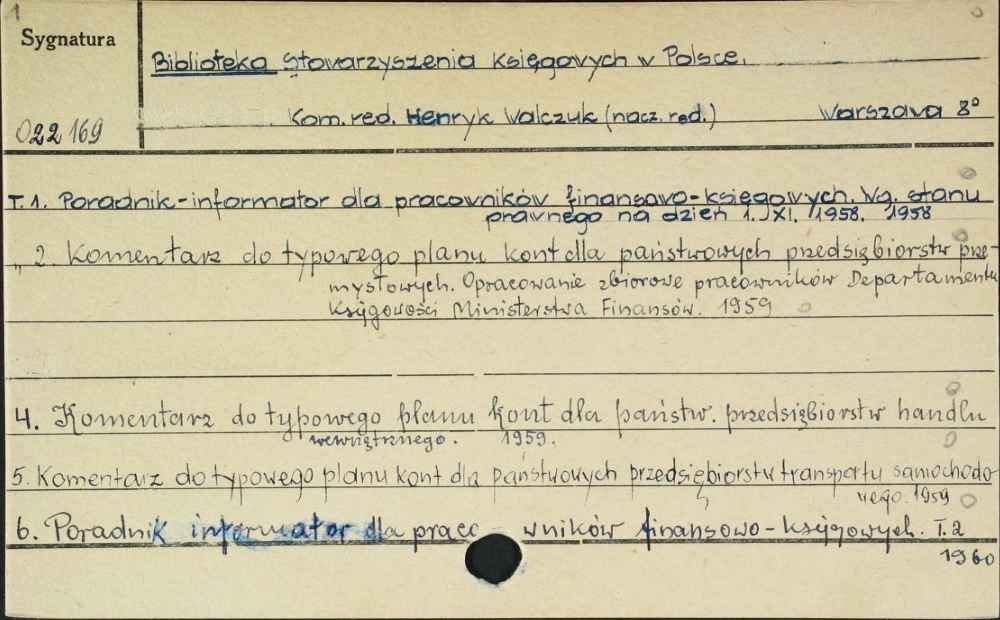 1
Sygnatura
Biblioteka Stowarzyszenia Księgowych w Polsce.
Kom. red. Henryk Walczuk (nacz. red.) Warszawa 8°
O22 169
T. 1. Poradnik-informator dla pracowników finansowo-księgowych. Wg. stanu
prawnego na dzień 1. XI. 1958. 1958
„ 2. Komentarz do typowego planu kont dla państwowych przedsiębiorstw prze-
mysłowych. Opracowanie zbiorowe pracowników Departamentu
Księgowości Ministerstwa Finansów. 1959
4. Komentarz do typowego planu kont dla państw. przedsiębiorstw handlu
wewnętrznego. 1959.
5. Komentarz do typowego planu kont dla państwowych przedsiębiorstw transportu samochodo-
wego. 1959
6. Poradnik informator dla pracowników finansowo-księgowych. T. 2
1960